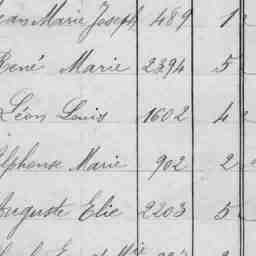 Jean Marie Joseph 489 1
René Marie 2394 5
Léon Louis 1602 4
Alphonse Marie 902 2
Auguste Elie 2203 5